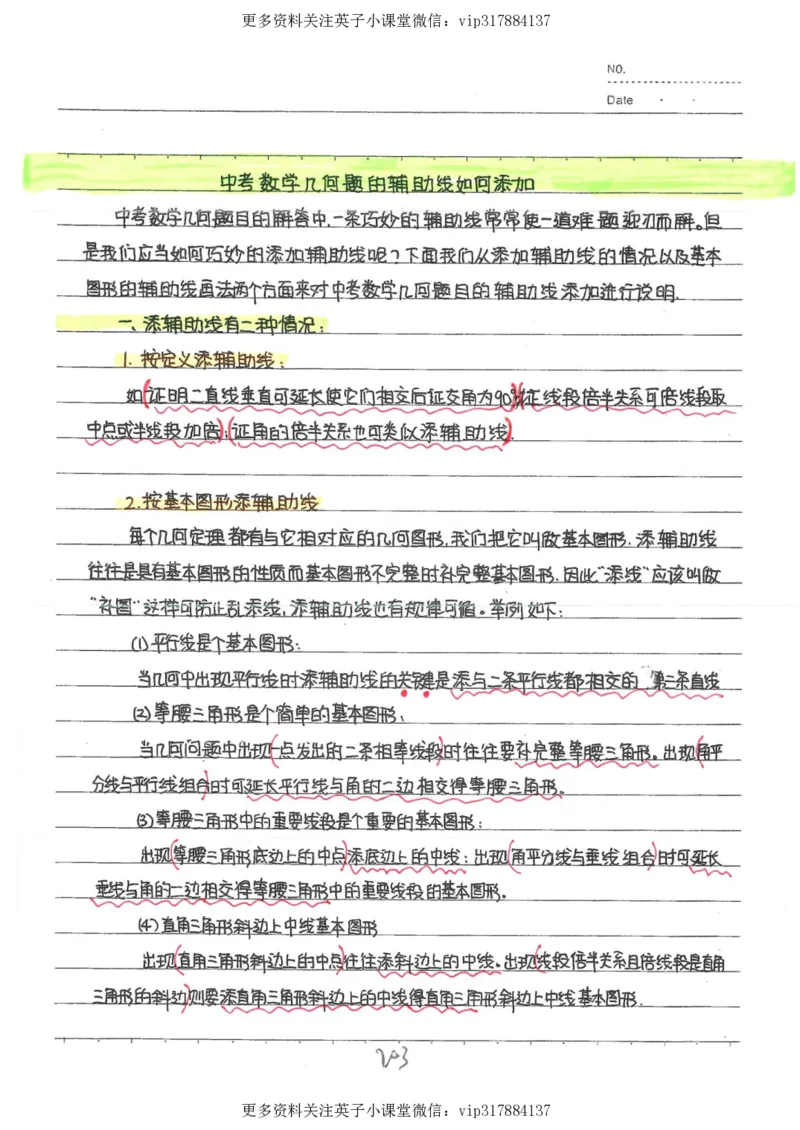 更多资料关注英子小课堂微信：vip317884137
NO.
Date
中考数学几何题的辅助线如何添加
中考数学几何题目的解答中,一条巧妙的辅助线常常使一道难题迎刃而解。但
是我们应当如何巧妙的添加辅助线呢？下面我们从添加辅助线的情况以及基本
图形的辅助线画法两个方面来对中考数学几何题目的辅助线添加进行说明.
一、添辅助线有二种情况：
1. 按定义添辅助线：
如(证明二直线垂直可延长使它们相交后证交角为90°);(证线段倍半关系可倍线段取
中点或半线段加倍);(证角的倍半关系也可类似添辅助线).
2.按基本图形添辅助线
每个几何定理都有与它相对应的几何图形,我们把它叫做基本图形.添辅助线
往往是具有基本图形的性质而基本图形不完整时补完整基本图形.因此“添线”应该叫做
“补图”这样可防止乱添线,添辅助线也有规律可循。举例如下：
(1)平行线是个基本图形：
当几何中出现平行线时添辅助线的关键是添与二条平行线都相交的“第三条直线
(2)等腰三角形是个简单的基本图形：
当几何问题中出现(一点发出的二条相等线段)时往往要补完整等腰三角形。出现(角平
分线与平行线组合)时可延长平行线与角的二边相交得等腰三角形。
(3)等腰三角形中的重要线段是个重要的基本图形：
出现(等腰三角形底边上的中点)添底边上的中线；出现(角平分线与垂线组合)时可延长
垂线与角的二边相交得等腰三角形中的重要线段的基本图形。
(4)直角三角形斜边上中线基本图形
出现(直角三角形斜边上的中点)往往添斜边上的中线。出现(线段倍半关系且倍线段是直角
三角形的斜边)则要添直角三角形斜边上的中线得直角三角形斜边上中线基本图形.
203
更多资料关注英子小课堂微信：vip317884137